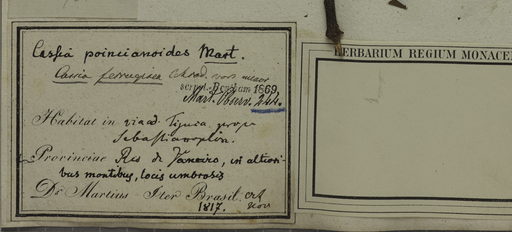 Cassia poincianoides Mart.
Cassia ferruginea Schrad.
scrips. Bentham 1869.
Mart. Observ. 244.
Habitat in via ad Tijuca prope
Sebastianopolin.
Provinciae Rio de Janeiro, in altiori-
bus montibus, locis umbrosis
Dr. Martius Iter Brasil. Oct
1817. Nov
HERBARIUM REGIUM MONACE